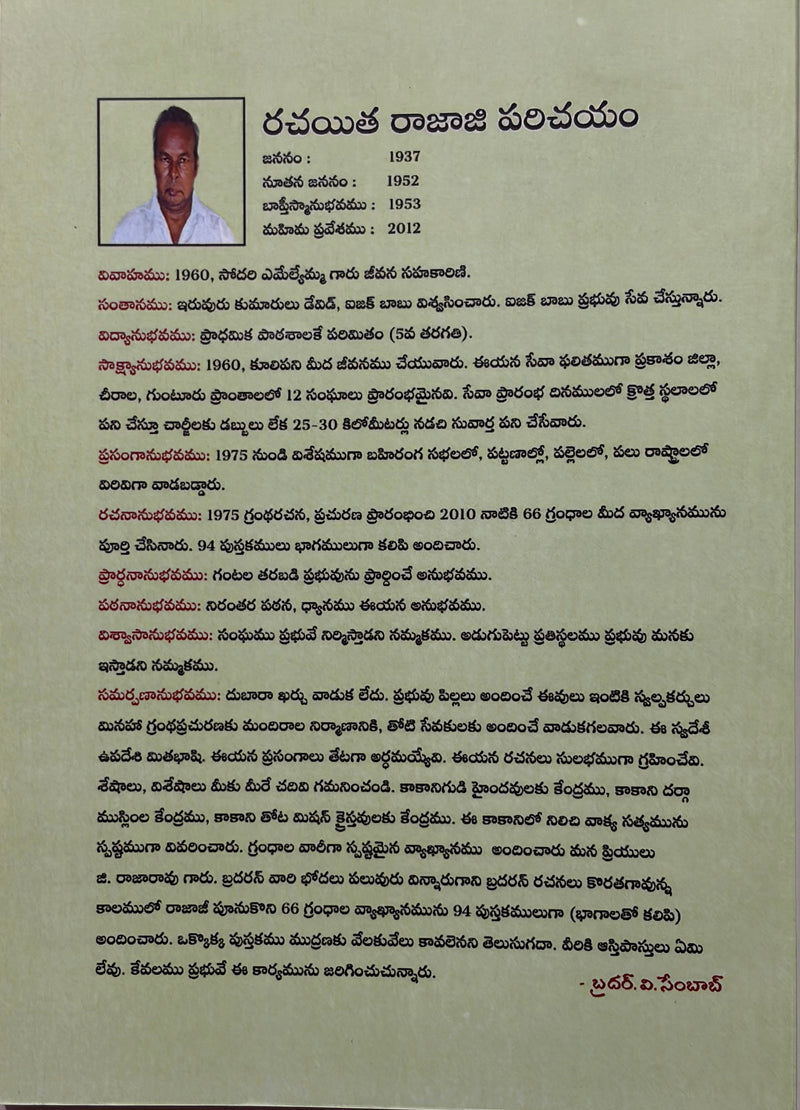 రచయిత రాజాజి పరిచయం
జననం : 1937
నూతన జననం : 1952
బాప్తీస్మానుభవము : 1953
మహిమ ప్రవేశము : 2012
వివాహము: 1960, సోదరి ఎమేల్యేమ్మ గారు జీవన సహకారిణి.
సంతానము: ఇరువురు కుమారులు డేవిడ్, ఐజక్ బాబు విశ్వసించారు. ఐజక్ బాబు ప్రభువు సేవ చేస్తున్నారు.
విద్యానుభవము: ప్రాధమిక పాఠశాలకే పరిమితం (5వ తరగతి).
సాక్ష్యానుభవము: 1960, కూలిపని మీద జీవనము చేయువారు. ఈయన సేవా ఫలితముగా ప్రకాశం జిల్లా,
చీరాల, గుంటూరు ప్రాంతాలలో 12 సంఘాలు ప్రారంభమైనవి. సేవా ప్రారంభ దినములలో క్రొత్త స్థలాలలో
పని చేస్తూ చార్జీలకు డబ్బులు లేక 25-30 కిలోమీటర్లు నడచి సువార్త పని చేసేవారు.
ప్రసంగానుభవము: 1975 నుండి విశేషముగా బహిరంగ సభలలో, పట్టణాల్లో, పల్లెలలో, పలు రాష్ట్రాలలో
విరివిగా వాడబడ్డారు.
రచనానుభవము: 1975 గ్రంథరచన, ప్రచురణ ప్రారంభించి 2010 నాటికి 66 గ్రంధాల మీద వ్యాఖ్యానమును
పూర్తి చేసినారు. 94 పుస్తకములు భాగములుగా కలిపి అందిచారు.
ప్రార్ధనానుభవము: గంటల తరబడి ప్రభువును ప్రార్దించే అనుభవము.
పఠనానుభవము: నిరంతర పఠన, ధ్యానము ఈయన అనుభవము.
విశ్వాసానుభవము: సంఘము ప్రభువే నిర్మిస్తాడని నమ్మకము. అడుగుపెట్టు ప్రతిస్థలము ప్రభువు మనకు
ఇస్తాడని నమ్మకము.
సమర్పణానుభవము: దుబారా ఖర్చు వాడుక లేదు. ప్రభువు పిల్లలు అందించే ఈవులు ఇంటికి స్వల్పకర్చులు
మినహా గ్రంథప్రచురణకు మందిరాల నిర్మాణానికి, తోటి సేవకులకు అందించే వాడుకగలవారు. ఈ స్వదేశీ
ఉపదేశి మితభాషి. ఈయన ప్రసంగాలు తేటగా అర్ధమయ్యేవి. ఈయన రచనలు సులభముగా గ్రహించేవి.
శేషాలు, విశేషాలు మీకు మీరే చదివి గమనించండి. కాకానిగుడి హైందవులకు కేంద్రము, కాకాని దర్గా
ముస్లింల కేంద్రము, కాకాని తోట మిషన్ క్రైస్తవులకు కేంద్రము. ఈ కాకానిలో నిలిచి వాక్య సత్యమును
స్పష్టముగా వివరించారు. గ్రంధాల వారీగా స్పష్టమైన వ్యాఖ్యానము అందించారు మన ప్రియులు
జి. రాజారావు గారు. బ్రదరన్ వారి భోదలు పలువురు విన్నారుగాని బ్రదరన్ రచనలు కొరతగావున్న
కాలములో రాజాజీ పూనుకొని 66 గ్రంధాల వ్యాఖ్యానమును 94 పుస్తకములుగా (భాగాలతో కలిపి)
అందించారు. ఒక్కొక్క పుస్తకము ముద్రణకు వేలకువేలు కావలెనని తెలుసుగదా. వీరికి ఆస్తిపాస్తులు ఏమి
లేవు. కేవలము ప్రభువే ఈ కార్యమును జరిగించుచున్నారు.
- బ్రదర్. వి. సేంబాబ్